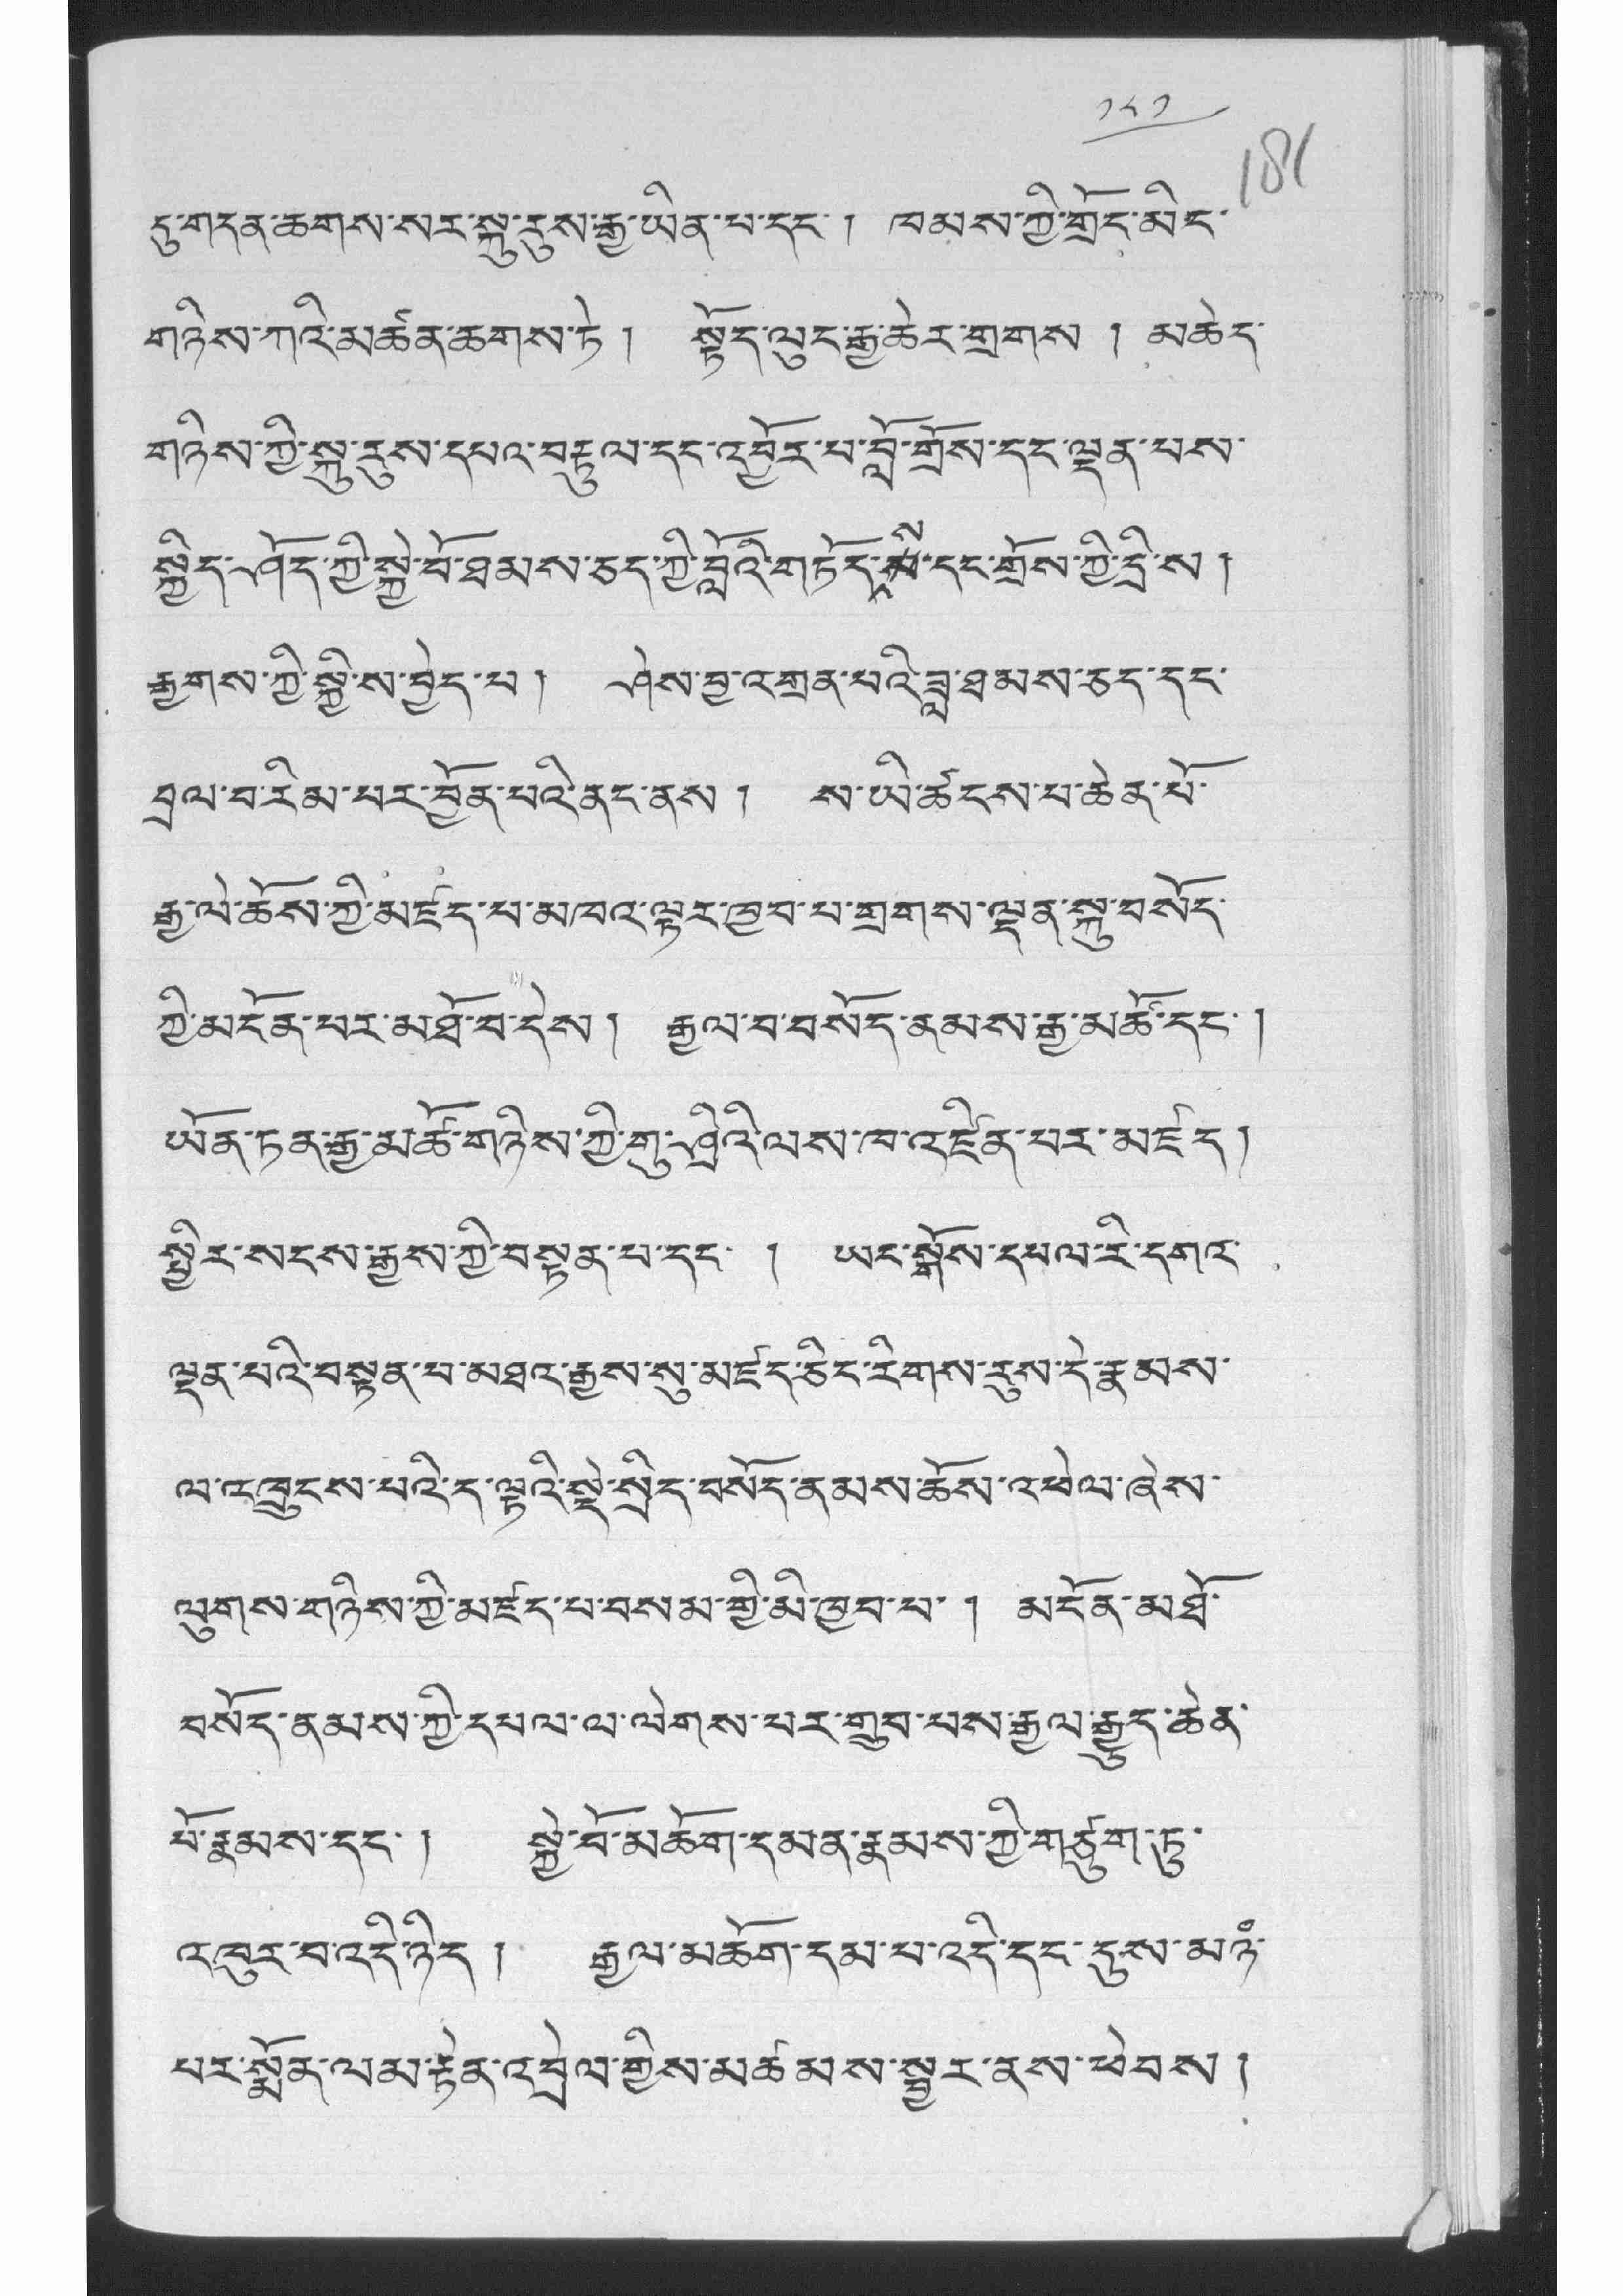 ༡༨༡
181
དུ་གདན་ཆགས་སར་སྐུ་རུས་རྒྱ་ཡིན་པ་དང་། ཁམས་ཀྱི་གྲོད་མིད་
གཉིས་ཀའི་མཚན་ཆགས་ཏེ། སྟོད་ལུང་རྒྱ་ཆེར་གྲགས། མཆེད་
གཉིས་ཀྱི་སྐུ་རུས་དཔའ་བརྟུལ་དང་འབྱོར་པ་བློ་གྲོས་དང་ལྡན་པས་
སྐྱིད་ཤོད་ཀྱི་སྐྱེ་བོ་ཐམས་ཅད་ཀྱི་བློའི་གཏོད་ས་དང་གྲོས་ཀྱི་དྲི་ས།
རྒྱགས་ཀྱི་སྐྱི་ས་བྱེད་པ། ཤེས་བྱ་འགྲན་པའི་ཟླ་ཐམས་ཅད་དང་
བྲལ་བ་རིམ་པར་བྱོན་པའི་ནང་ནས། ས་ཡི་ཚངས་པ་ཆེན་པོ་
རྒྱ་ལེ་ཆོས་ཀྱི་མཛད་པ་མཁའ་ལྟར་ཁྱབ་པ་གྲགས་ལྡན་སྐུ་བསོད་
ཀྱི་མངོན་པར་མཐོ་བ་དེས། རྒྱལ་བ་བསོད་ནམས་རྒྱ་མཚོ་དང་།
ཡོན་ཏན་རྒྱ་མཚོ་གཉིས་ཀྱི་གུ་ཤྲིའི་ལས་ཁ་འཛིན་པར་མཛད།
སྤྱིར་སངས་རྒྱས་ཀྱི་བསྟན་པ་དང་། ཡང་སྒོས་དཔལ་རི་དགའ་
ལྡན་པའི་བསྟན་པ་མཐའ་རྒྱས་སུ་མཛད་ཅིང་རིགས་རུས་དེ་རྣམས་
ལ་འཁྲུངས་པའི་ད་ལྟའི་སྡེ་སྲིད་བསོད་ནམས་ཆོས་འཕེལ་ཞེས་
ལུགས་གཉིས་ཀྱི་མཛད་པ་བསམ་གྱི་མི་ཁྱབ་པ་། མངོན་མཐོ་
བསོད་ནམས་ཀྱི་དཔལ་ལ་ལེགས་པར་གྲུབ་པས་རྒྱལ་རྒྱུད་ཆེན་
པོ་རྣམས་དང་། སྐྱེ་བོ་མཆོག་དམན་རྣམས་ཀྱི་གཙུག་ཏུ་
འཁུར་བ་འདི་ཉིད། རྒྱལ་མཆོག་དམ་པ་འདི་དང་དུས་མཉཾ་
པར་སྨོན་ལམ་རྟེན་འབྲེལ་གྱིས་མཚམས་སྦྱར་ནས་ཕེབས།